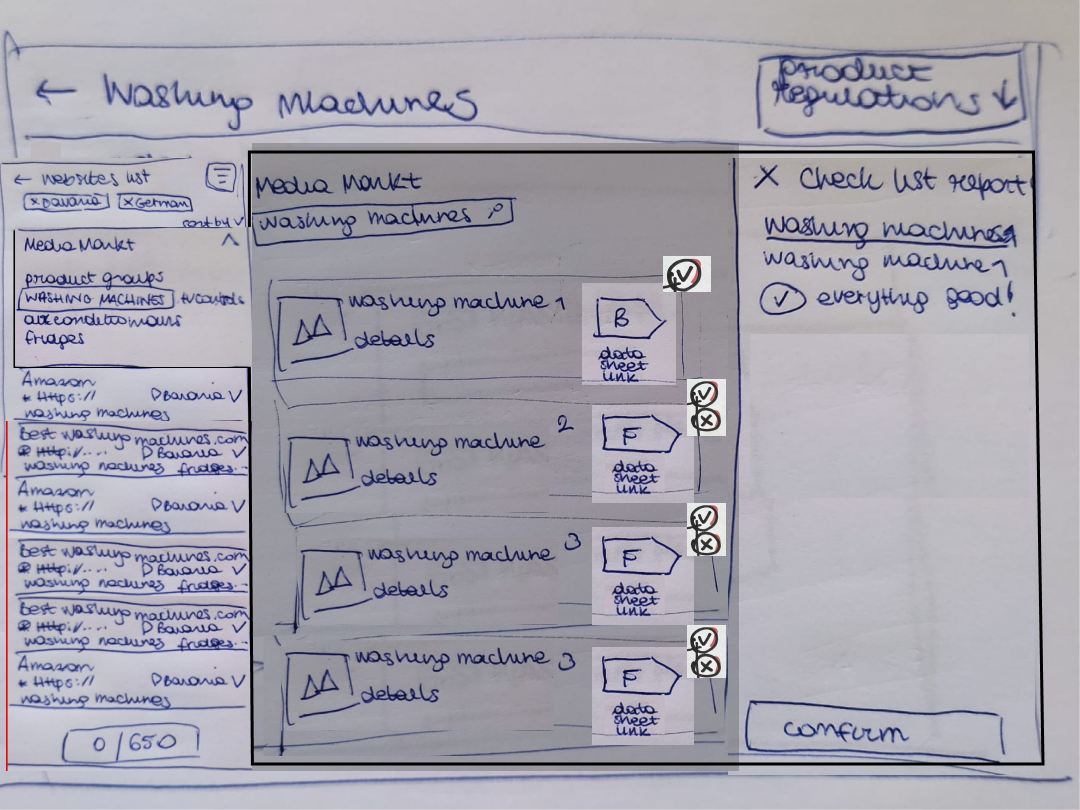 ← Washing Machines
product
regulations ↓
← websites list
x Bavaria x German
sort by
Media Markt
product groups
WASHING MACHINES tv controls
airconditioners
fridges
Amazon
* Http:// Bavaria
washing machines
Best washing machines.com
Http://.... Bavaria
washing machines fridges...
Amazon
* Http:// Bavaria
washing machines
Best washing machines.com
Http://.... Bavaria
washing machines fridges...
Best washing machines.com
Http://.... Bavaria
washing machines fridges...
Amazon
* Http:// Bavaria
washing machines
0/650
Media Markt
washing machines
washing machine 1
details
B
data
sheet
link
washing machine 2
details
F
data
sheet
link
washing machine 3
details
F
data
sheet
link
washing machine 3
details
F
data
sheet
link
X Check list report
washing machine 1
everything good!
confirm